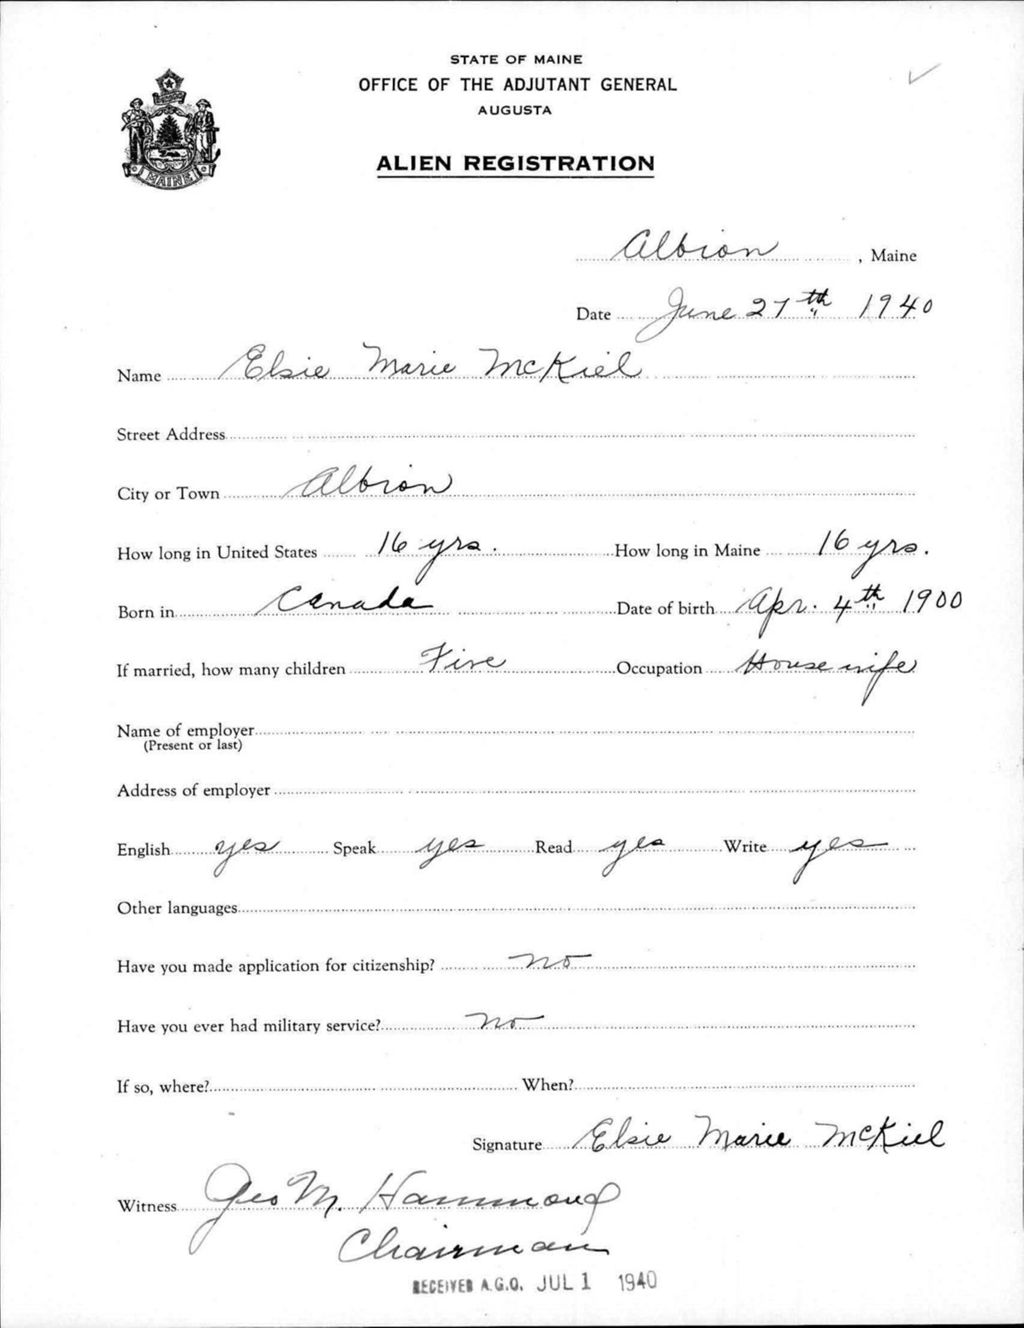 STATE OF MAINE
OFFICE OF THE ADJUTANT GENERAL
AUGUSTA
MAINE
ALIEN REGISTRATION
Albion, Maine
Date June 27th 1940
Name Elsie Marie McKiel
Street Address
City or Town Albion
How long in United States 16 yrs. How long in Maine 16 yrs.
Born in Canada Date of birth Apr. 4th 1900
If married, how many children Five Occupation Housewife
Name of employer
(Present or last)
Address of employer
English yes Speak yes Read yes Write yes
Other languages
Have you made application for citizenship? no
Have you ever had military service? no
If so, where? When?
Signature Elsie Marie McKiel
Witness Geo M. Hammond
Chairman
RECEIVED A.G.O. JUL 1 1940